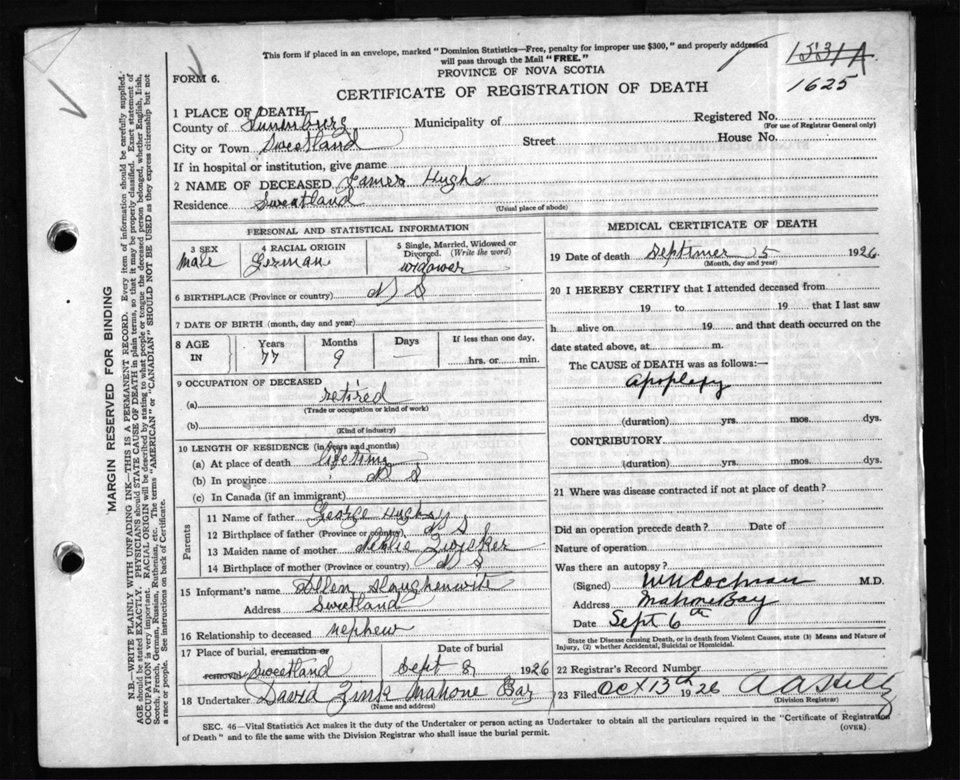 This form if placed in an envelope, marked "Dominion Statistics—Free, penalty for improper use $300," and properly addressed
will pass through the Mail "FREE."
1531A
1625
FORM 6.
PROVINCE OF NOVA SCOTIA
CERTIFICATE OF REGISTRATION OF DEATH
1 PLACE OF DEATH—
County of Lunenburg Municipality of Registered No.
(For use of Registrar General only)
City or Town Sweetland Street House No.
If in hospital or institution, give name
2 NAME OF DECEASED James Hughs
Residence Sweatland
(Usual place of abode)
PERSONAL AND STATISTICAL INFORMATION
3 SEX 4 RACIAL ORIGIN 5 Single, Married, Widowed or Divorced. (Write the word)
Male German widower
6 BIRTHPLACE (Province or country) N S
7 DATE OF BIRTH (month, day and year)
8 AGE IN Years Months Days If less than one day,
77 9 — hrs. or min.
9 OCCUPATION OF DECEASED
(a) retired
(Trade or occupation or kind of work)
(b)
(Kind of industry)
10 LENGTH OF RESIDENCE (in years and months)
(a) At place of death lifetime
(b) In province N S
(c) In Canada (if an immigrant)
Parents
11 Name of father George Hughs
12 Birthplace of father (Province or country) N S
13 Maiden name of mother
14 Birthplace of mother (Province or country) N S
15 Informant's name Allen Slaughenwite
Address Sweetland
16 Relationship to deceased nephew
17 Place of burial, cremation or removal Date of burial
Sweetland Sept 8, 1926
18 Undertaker David Zink Mahone Bay
(Name and address)
MEDICAL CERTIFICATE OF DEATH
19 Date of death Septimer 5 1926
(Month, day and year)
20 I HEREBY CERTIFY that I attended deceased from
19 to 19 that I last saw
h alive on 19 and that death occurred on the
date stated above, at m.
The CAUSE OF DEATH was as follows:—
Apoplexy
(duration) yrs. mos. dys.
CONTRIBUTORY
(duration) yrs. mos. dys.
21 Where was disease contracted if not at place of death?
Did an operation precede death? Date of
Nature of operation
Was there an autopsy?
(Signed) W N Cochran M.D.
Address Mahone Bay
Date Sept 6th
State the Disease causing Death, or in death from Violent Causes, state (1) Means and Nature of
Injury, (2) whether Accidental, Suicidal or Homicidal.
22 Registrar's Record Number
23 Filed Oct 13th 1926
(Division Registrar)
SEC. 46—Vital Statistics Act makes it the duty of the Undertaker or person acting as Undertaker to obtain all the particulars required in the "Certificate of Registration
of Death" and to file the same with the Division Registrar who shall issue the burial permit.
(OVER)
MARGIN RESERVED FOR BINDING
N.B.—WRITE PLAINLY WITH UNFADING INK—THIS IS A PERMANENT RECORD. Every item of information should be carefully supplied.
AGE should be stated EXACTLY. PHYSICIANS should STATE CAUSE OF DEATH in plain terms, so that it may be properly classified. Exact statement of
OCCUPATION is very important. RACIAL ORIGIN will be described by stating to what people or tongue the deceased person belonged, whether English, Irish,
Scotch, French, German, Russian, Ruthenian, etc. The terms "AMERICAN" or "CANADIAN" SHOULD NOT BE USED as they express citizenship but not
a race or people. See instructions on back of Certificate.